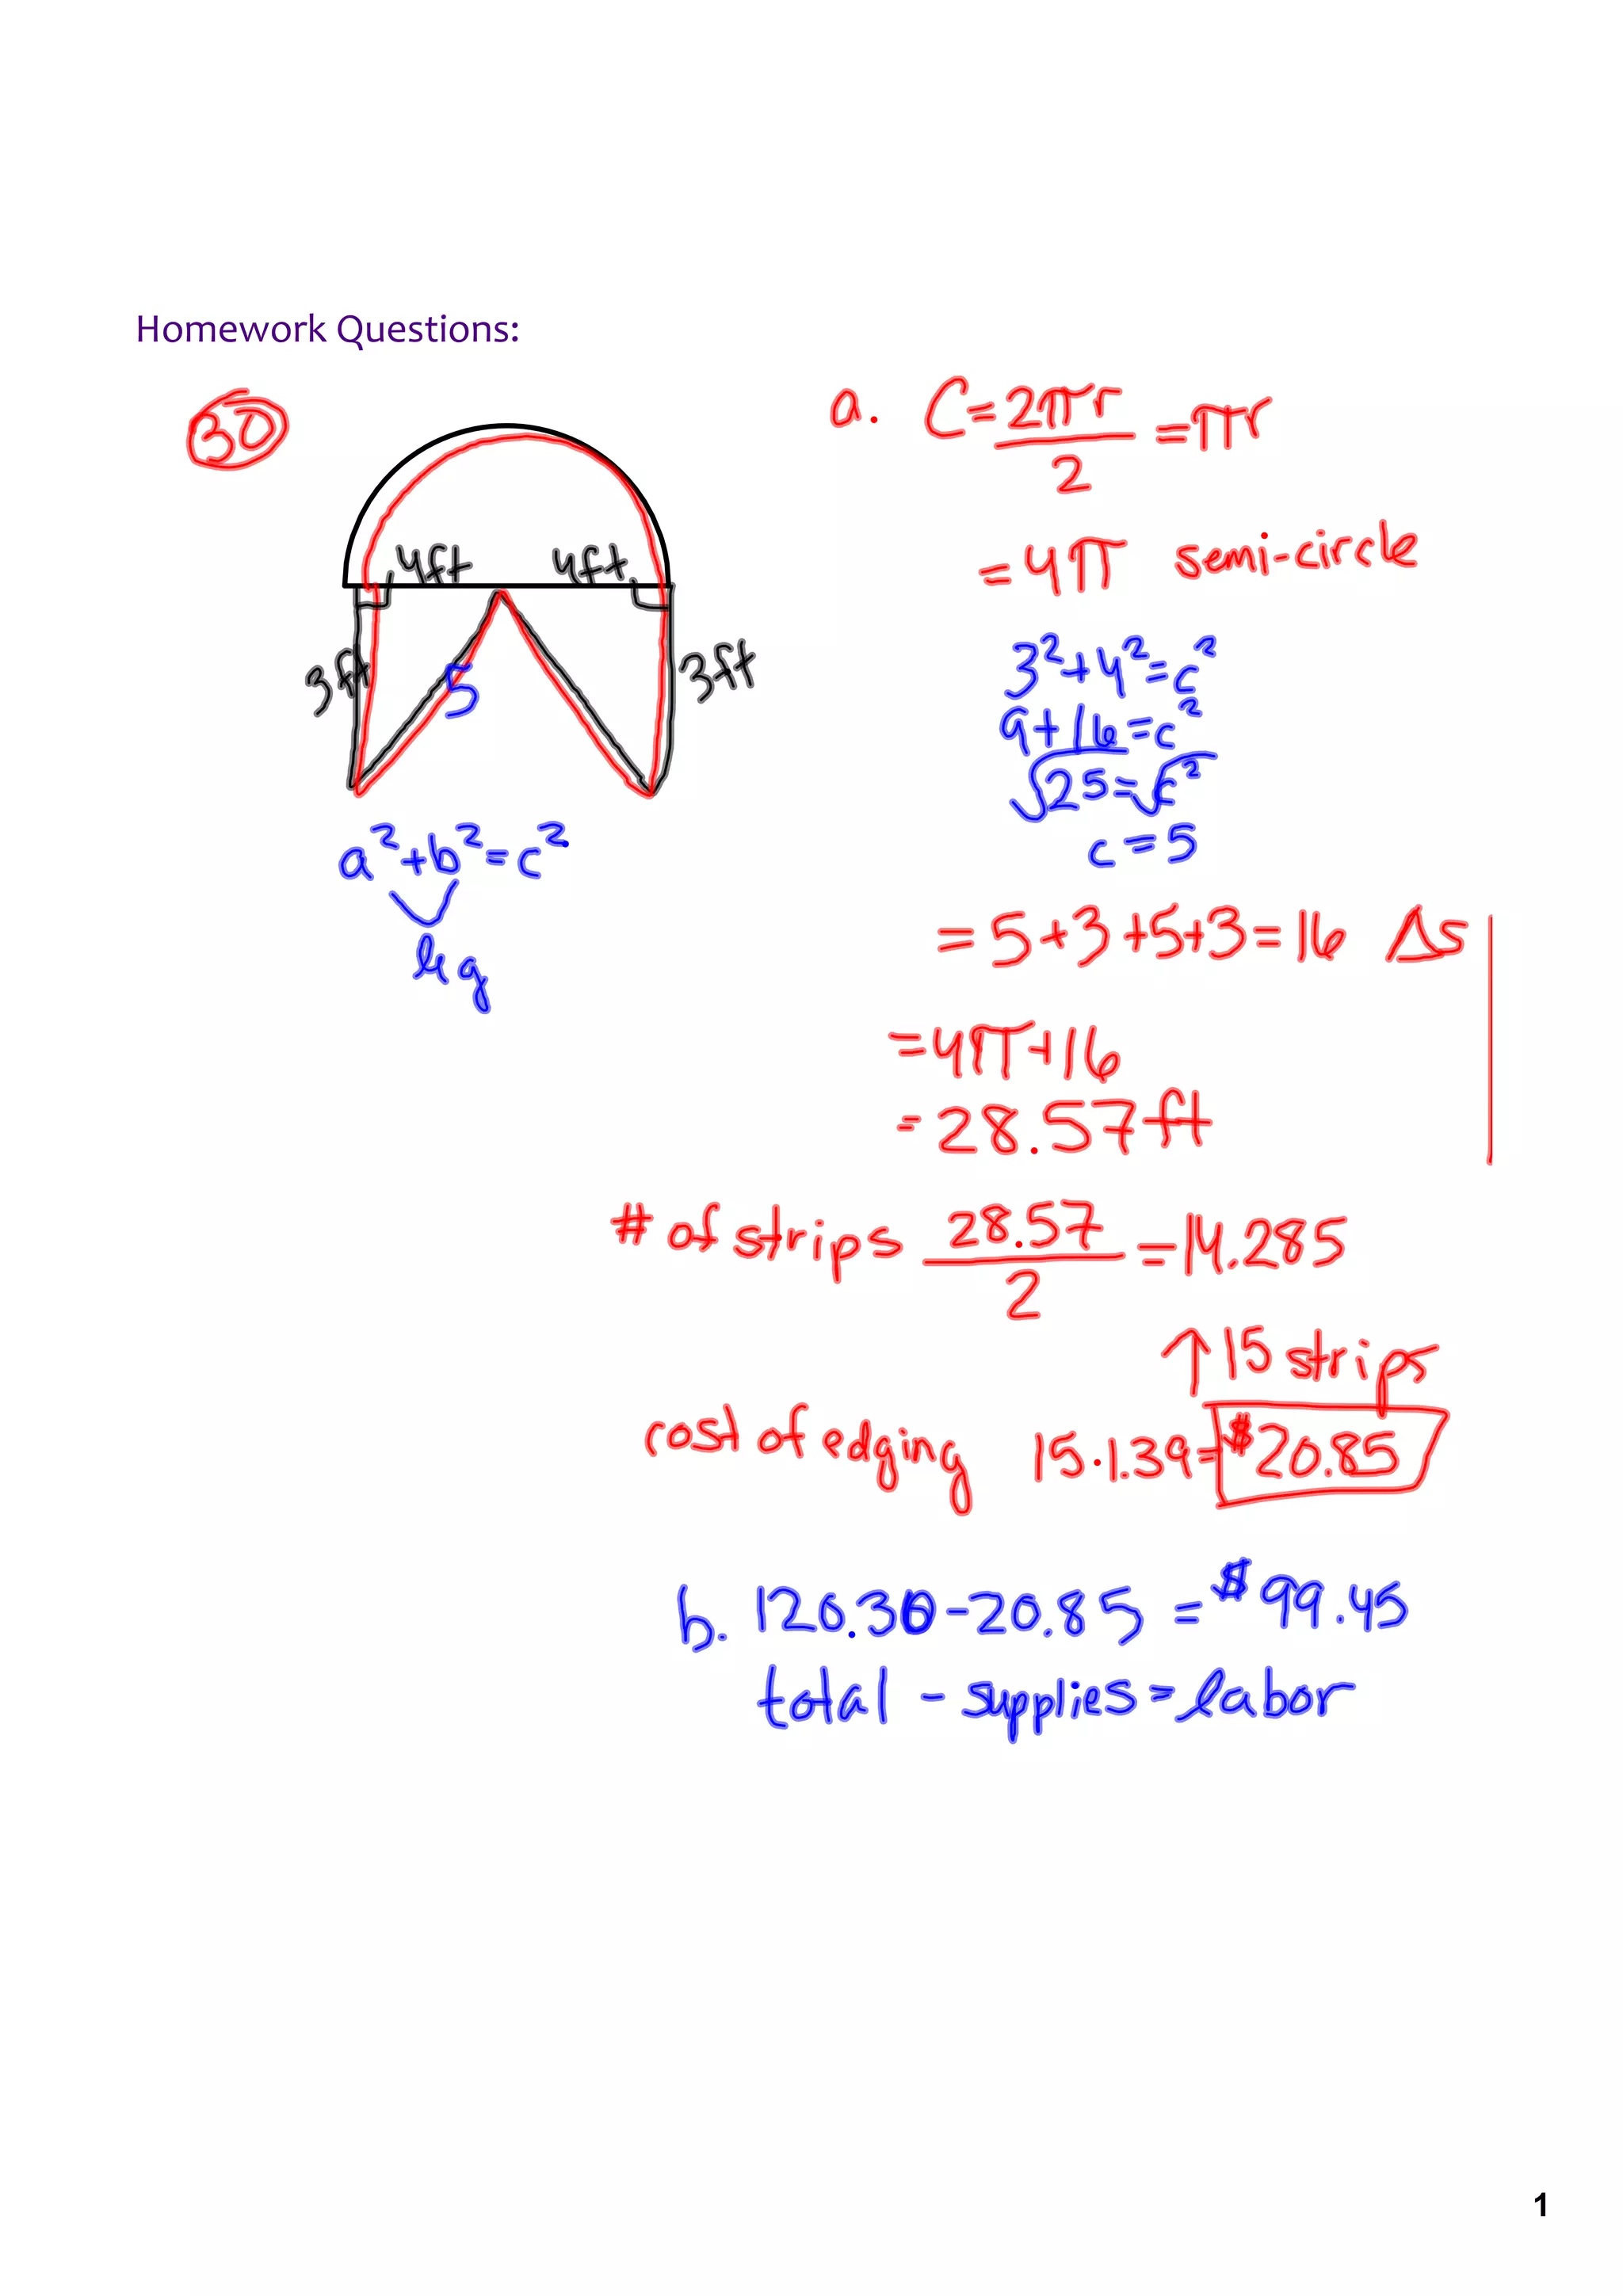 Homework Questions:
30
4ft 4ft
3ft 5 3ft
a²+b²=c²
leg
a. C=2πr/2 =πr
=4π semi-circle
3²+4²=c²
9+16=c²
√25=√c²
c=5
=5+3+5+3=16 Δs
=4π+16
=28.57ft
# of strips 28.57/2 =14.285
↑15 strips
cost of edging 15·1.39=$20.85
b. 120.30-20.85=$99.45
total - supplies=labor
1